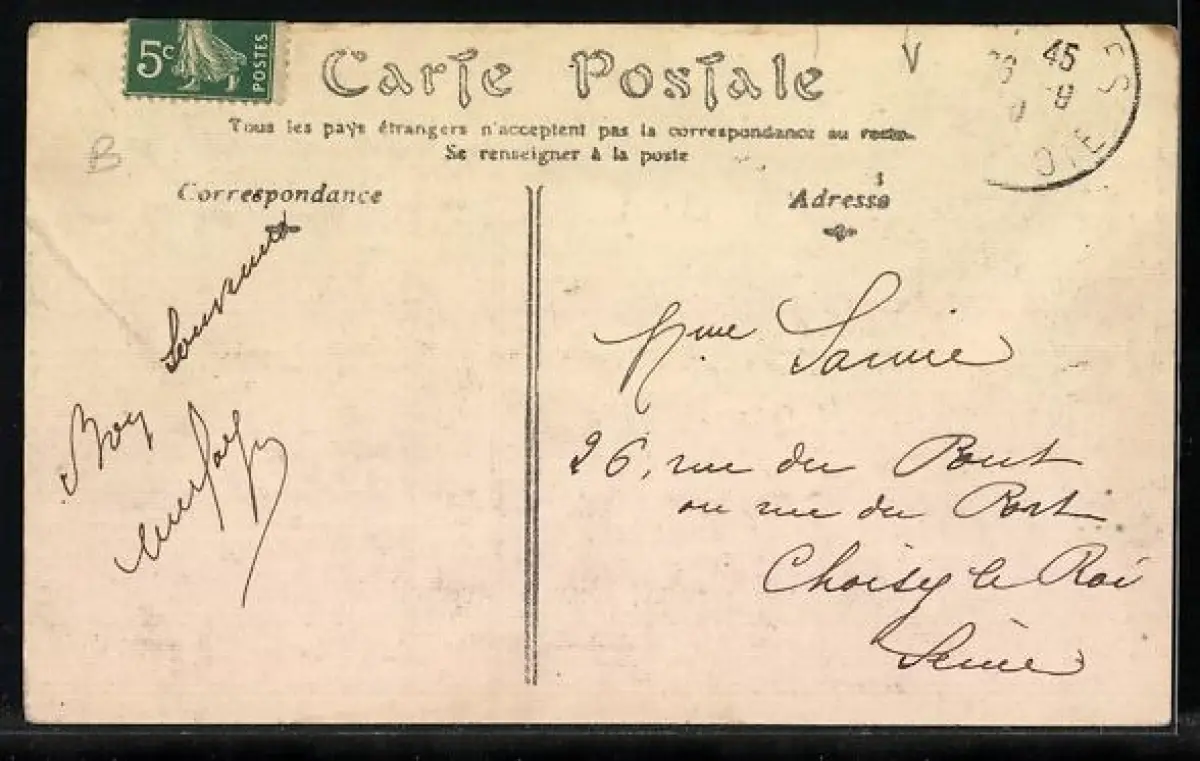 5c
POSTES
Carte Postale
Tous les pays étrangers n'acceptent pas la correspondance au recto.
Se renseigner à la poste
B
Correspondance
Bon Souvenir
Adresse
45
Mme
26, rue du Pont
ou rue du Port
Choisy le Roi
Seine